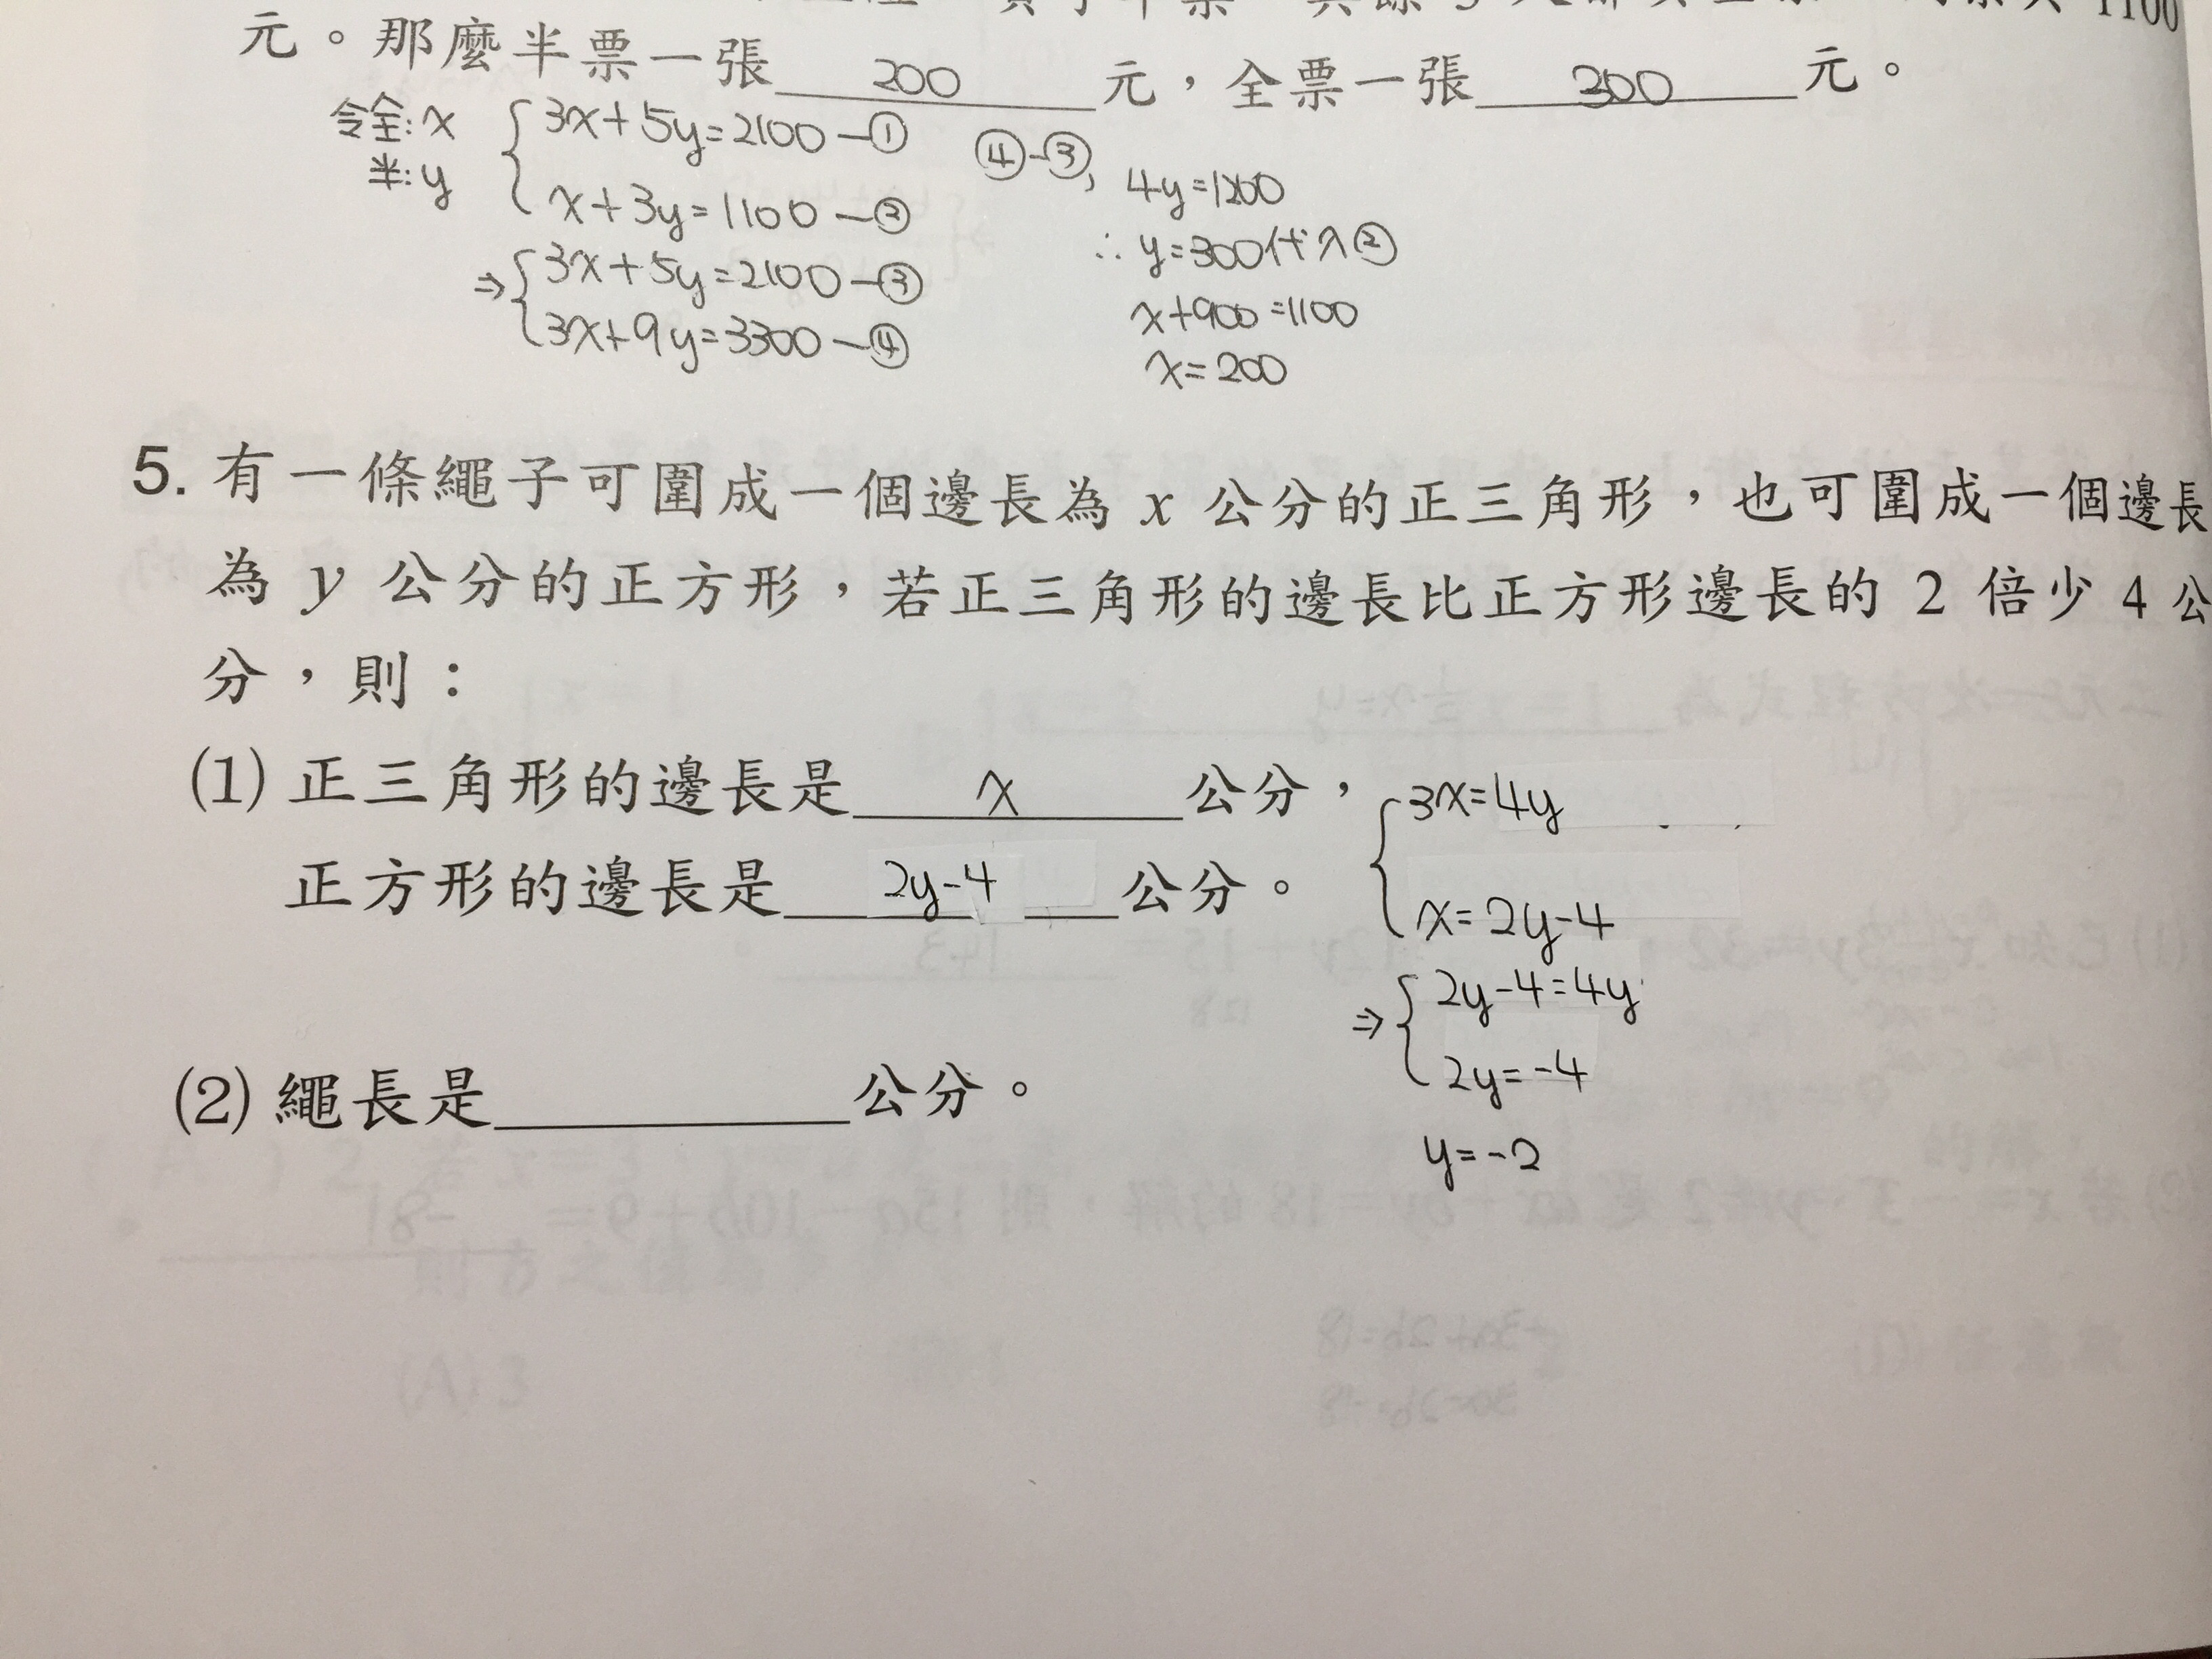 1100
元。那麼半票一張 200 元，全票一張 300 元。
令全:x
半:y
{3x+5y=2100—①
x+3y=1100—②
⇒{3x+5y=2100—③
3x+9y=3300—④
④-③,
4y=1200
∴y=300代入②
x+900=1100
x=200
5. 有一條繩子可圍成一個邊長為 x 公分的正三角形，也可圍成一個邊長
為 y 公分的正方形，若正三角形的邊長比正方形邊長的 2 倍少 4 公
分，則：
(1) 正三角形的邊長是 x 公分，
正方形的邊長是 2y-4 公分。
{3x=4y
x=2y-4
⇒{2y-4=4y
2y=-4
y=-2
(2) 繩長是 公分。